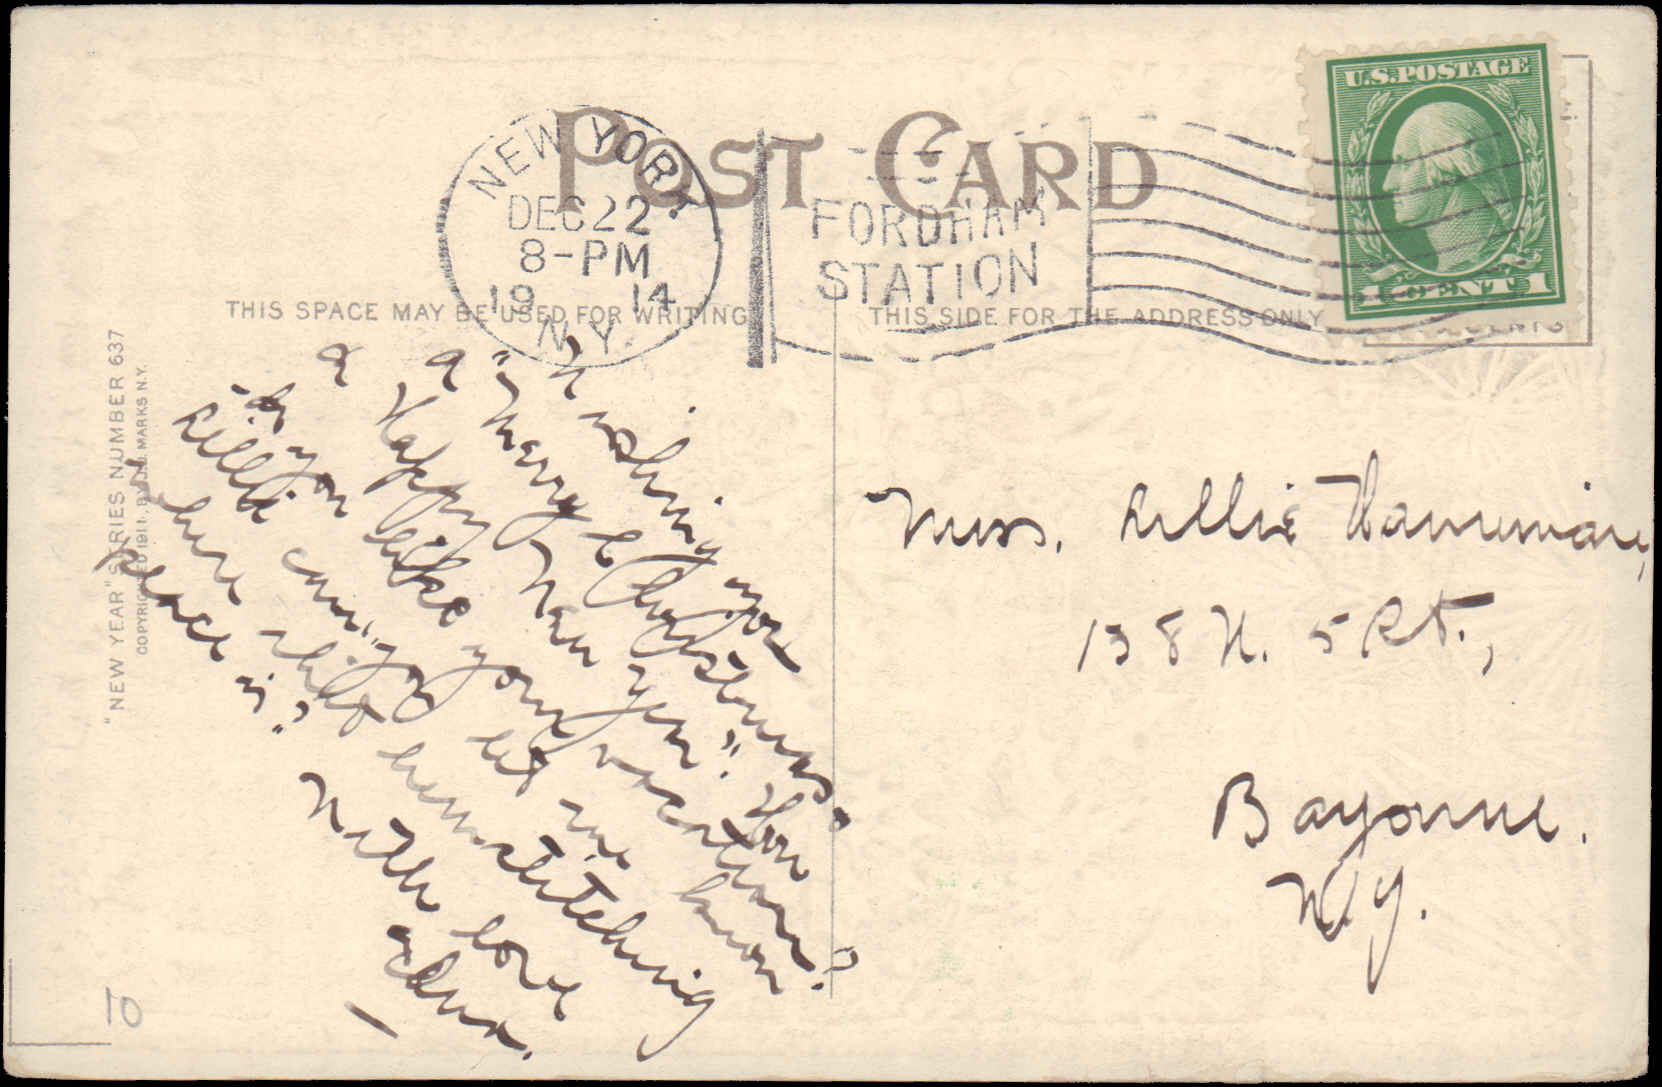 POST CARD
NEW YORK
DEC 22
8-PM
1914
N.Y.
FORDHAM
STATION
U.S. POSTAGE
1 CENT 1
THIS SPACE MAY BE USED FOR WRITING
THIS SIDE FOR THE ADDRESS ONLY
"NEW YEAR" SERIES NUMBER 637
COPYRIGHTED 1911, BY J. MARKS N.Y.
wishing you
a "Merry Christmas
& a Happy New Year".
do you like your vacation?
Lillie can you let me know
where that hemstitching
place is?
With love
Edna.
Miss. Lillie
138 W. 5 St.,
Bayonne.
N.J.
10